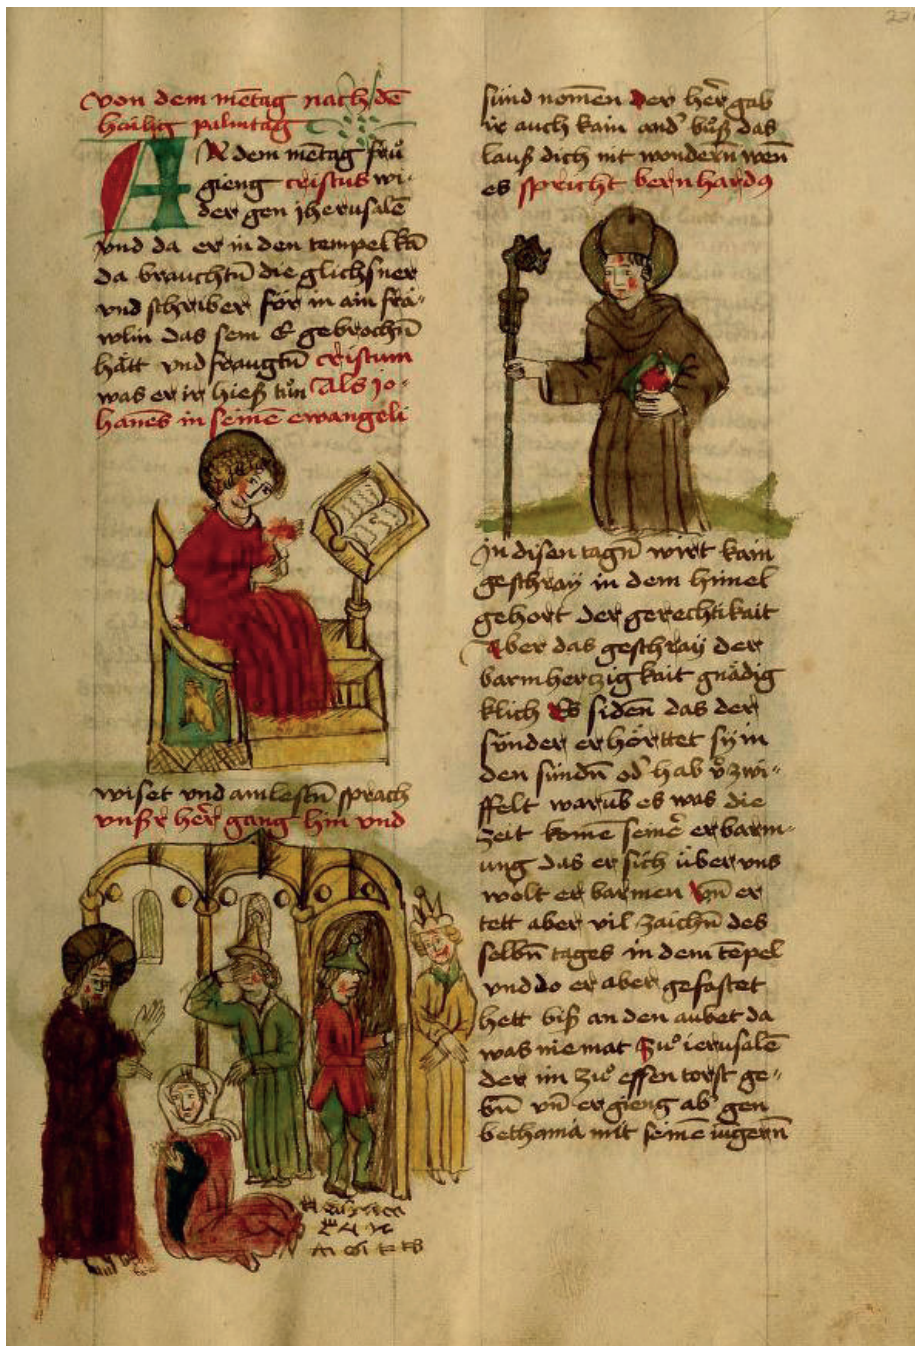 von dem mētag nach dē
hailig palmtag
AN dem mētag frů
gieng cristus wi-
der gen jherusalē
vnd da er in den tempel kā
da brauchtn̄ die glichsner
vnd schriberför in ain frä-
wlin das sem E gebrochn̄
hätt vnd fraugtn̄ cristum
was er ir hieß tůn Als jo-
hanēs in seinē ewangeli
wiset vnd am lestn̄ sprach
vnsʒ her̄ gang hin vnd
sünd nömen der her̄ gab
ir auch kain and' bůß das
lauß dich nit wondern̄ wen̄
es spricht bernhardꝯ
In disen tagn̄ wirt kain
geschray in dem himel
gehort der gerechtikait
Aber das geschraÿ der
barmherczigkait gnädig
klich Es siden̄ das der
sünder erhörttet sÿ in
den sündn̄ od' hab v̓zwi-
ffelt warūb es was die
zeit komē seinē erbarm-
ung das er sich über vns
wolt erbarmen Vn̄ er
tett aber vil zaichn̄ des
selbn̄ tages in dem tēpel
vnd do er aber gefastet
hett biß an den aubet da
was niemat zů ierusalē
der im zů essen torst ge-
bn̄ vn̄ er gieng ab' gen
bethania mit seinē iūgern̄